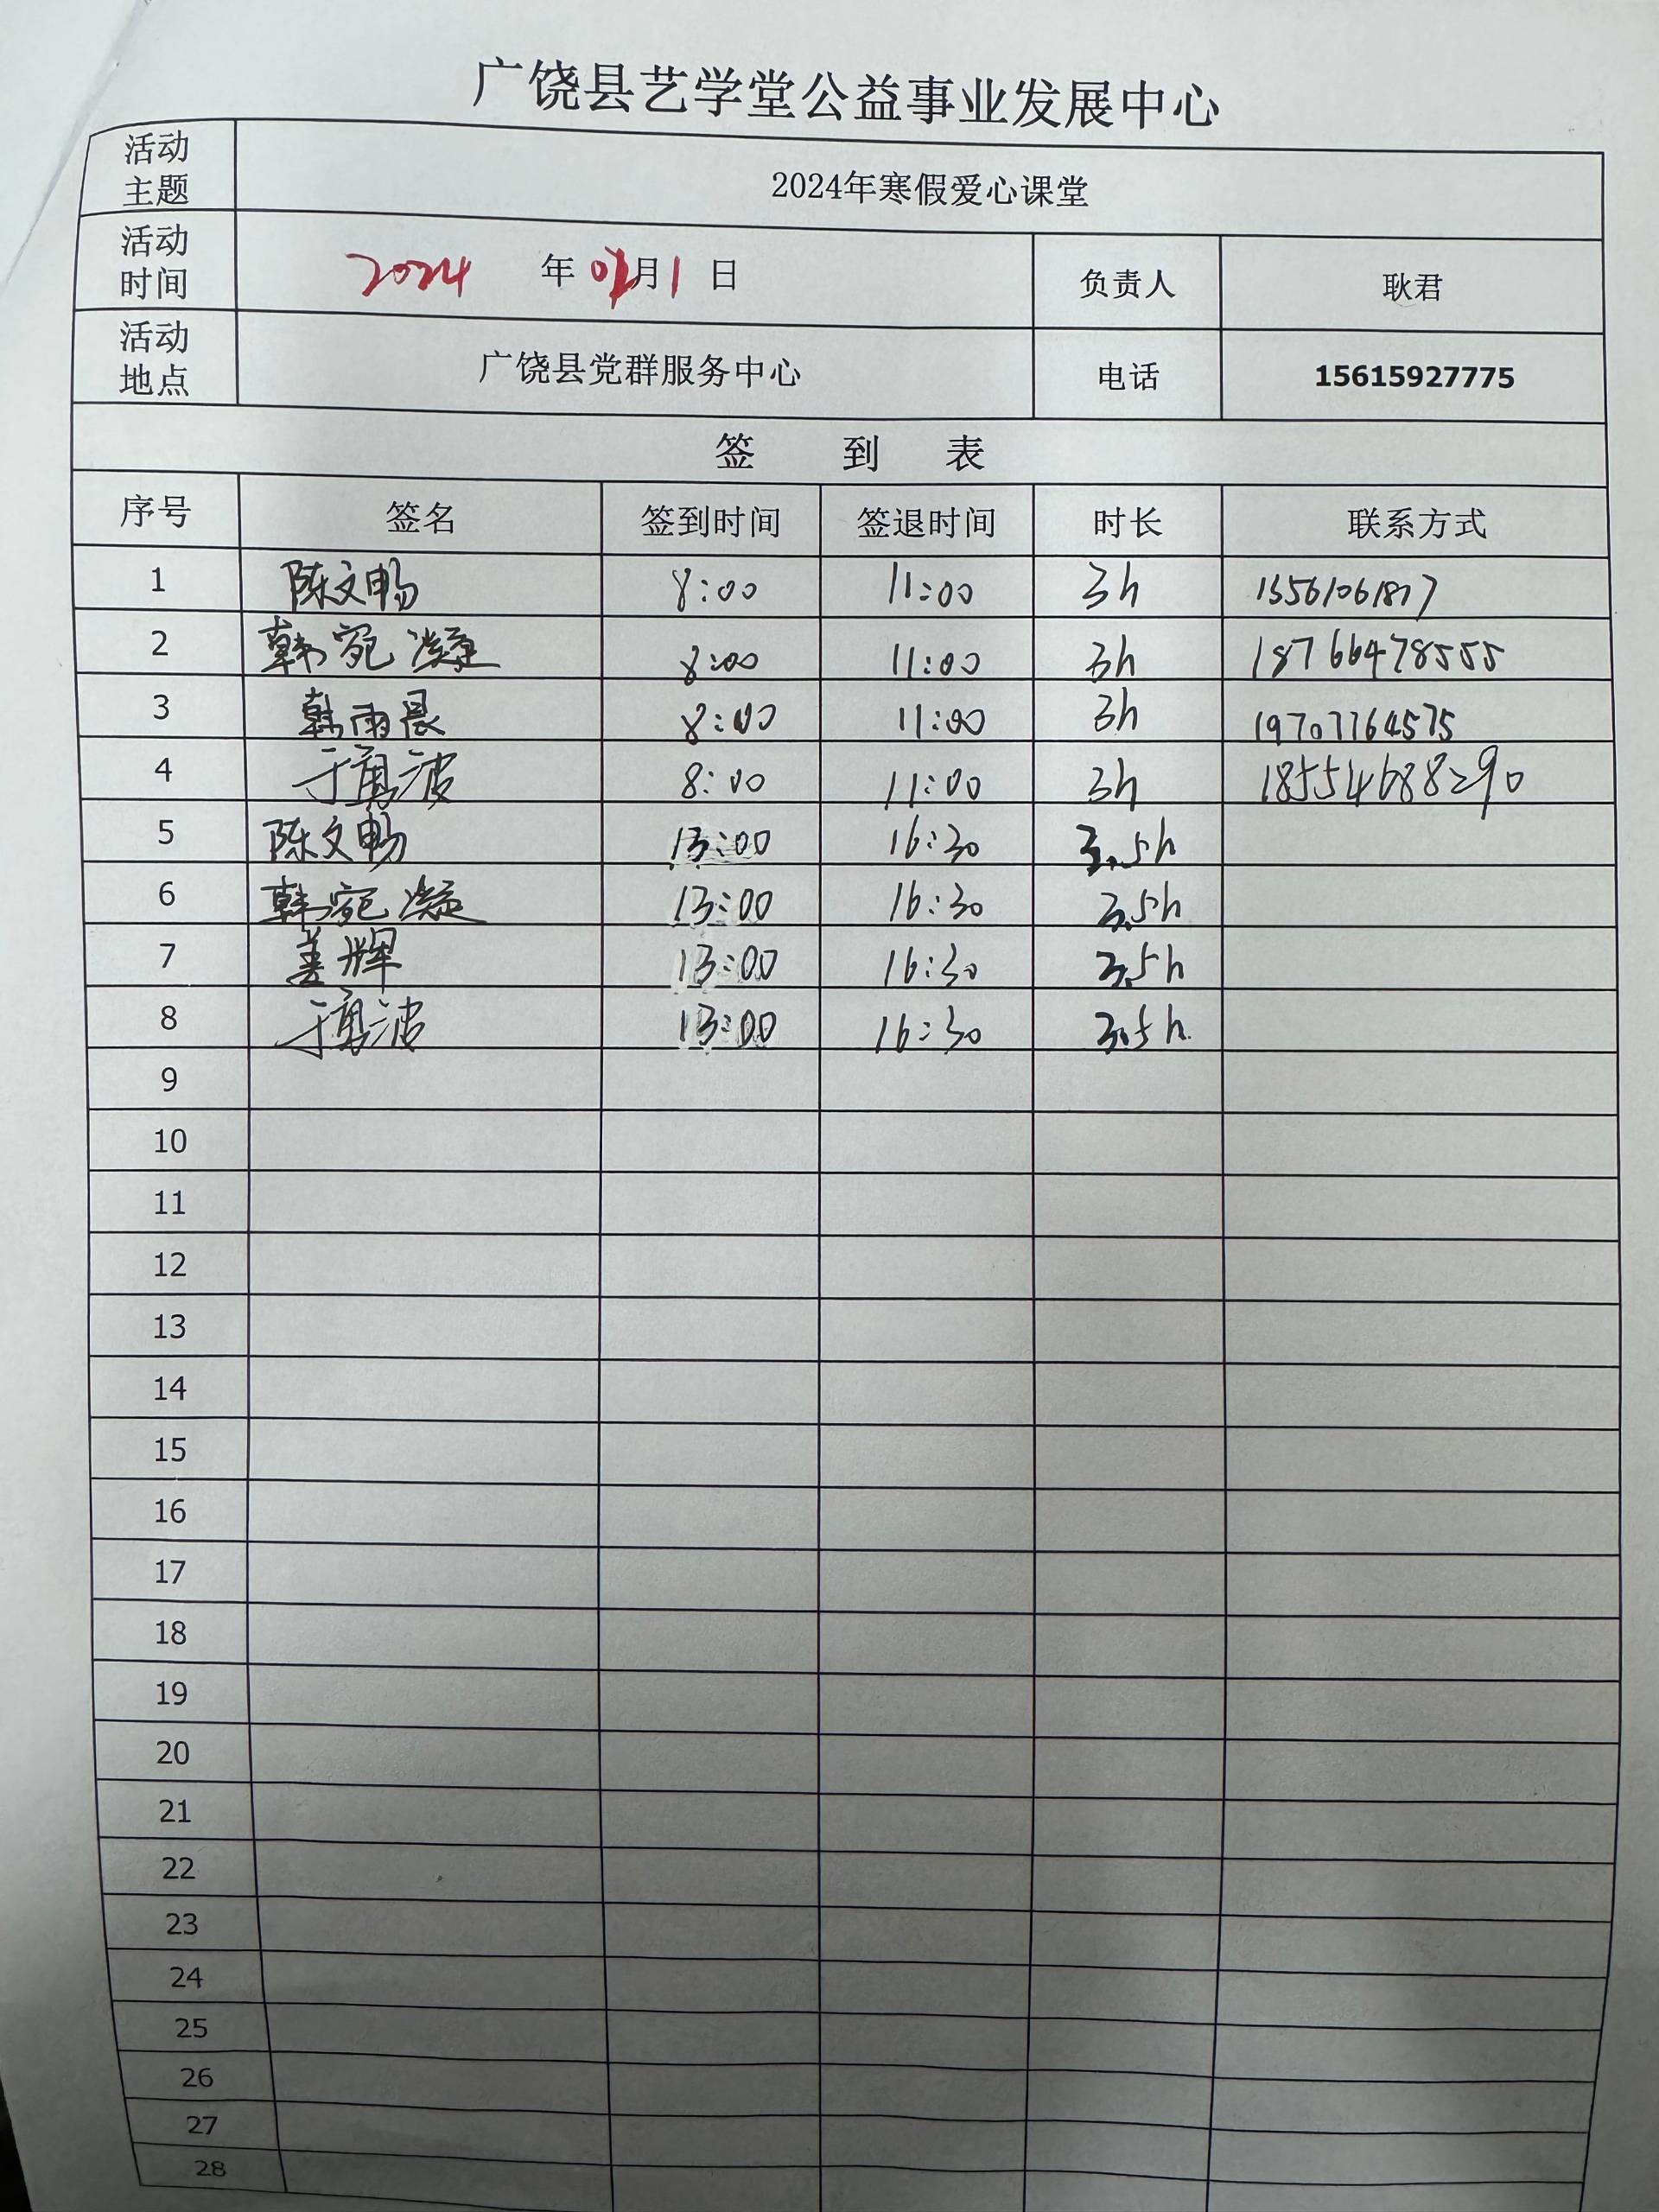 广饶县艺学堂公益事业发展中心
活动主题 2024年寒假爱心课堂
活动时间 2024 年 月 1 日 负责人 耿君
活动地点 广饶县党群服务中心 电话 15615927775
签 到 表
序号 签名 签到时间 签退时间 时长 联系方式
1 陈文畅 8:00 11:00 3h
2 韩宛凝 8:00 11:00 3h 18766478555
3 韩雨晨 8:00 11:00 3h 19707764575
4 于勇波 8:00 11:00 3h 18554688290
5 陈文畅 13:00 16:30 3.5h
6 韩宛凝 13:00 16:30 3.5h
7 姜辉 13:00 16:30 3.5h
8 于勇波 13:00 16:30 3.5h
9
10
11
12
13
14
15
16
17
18
19
20
21
22
23
24
25
26
27
28